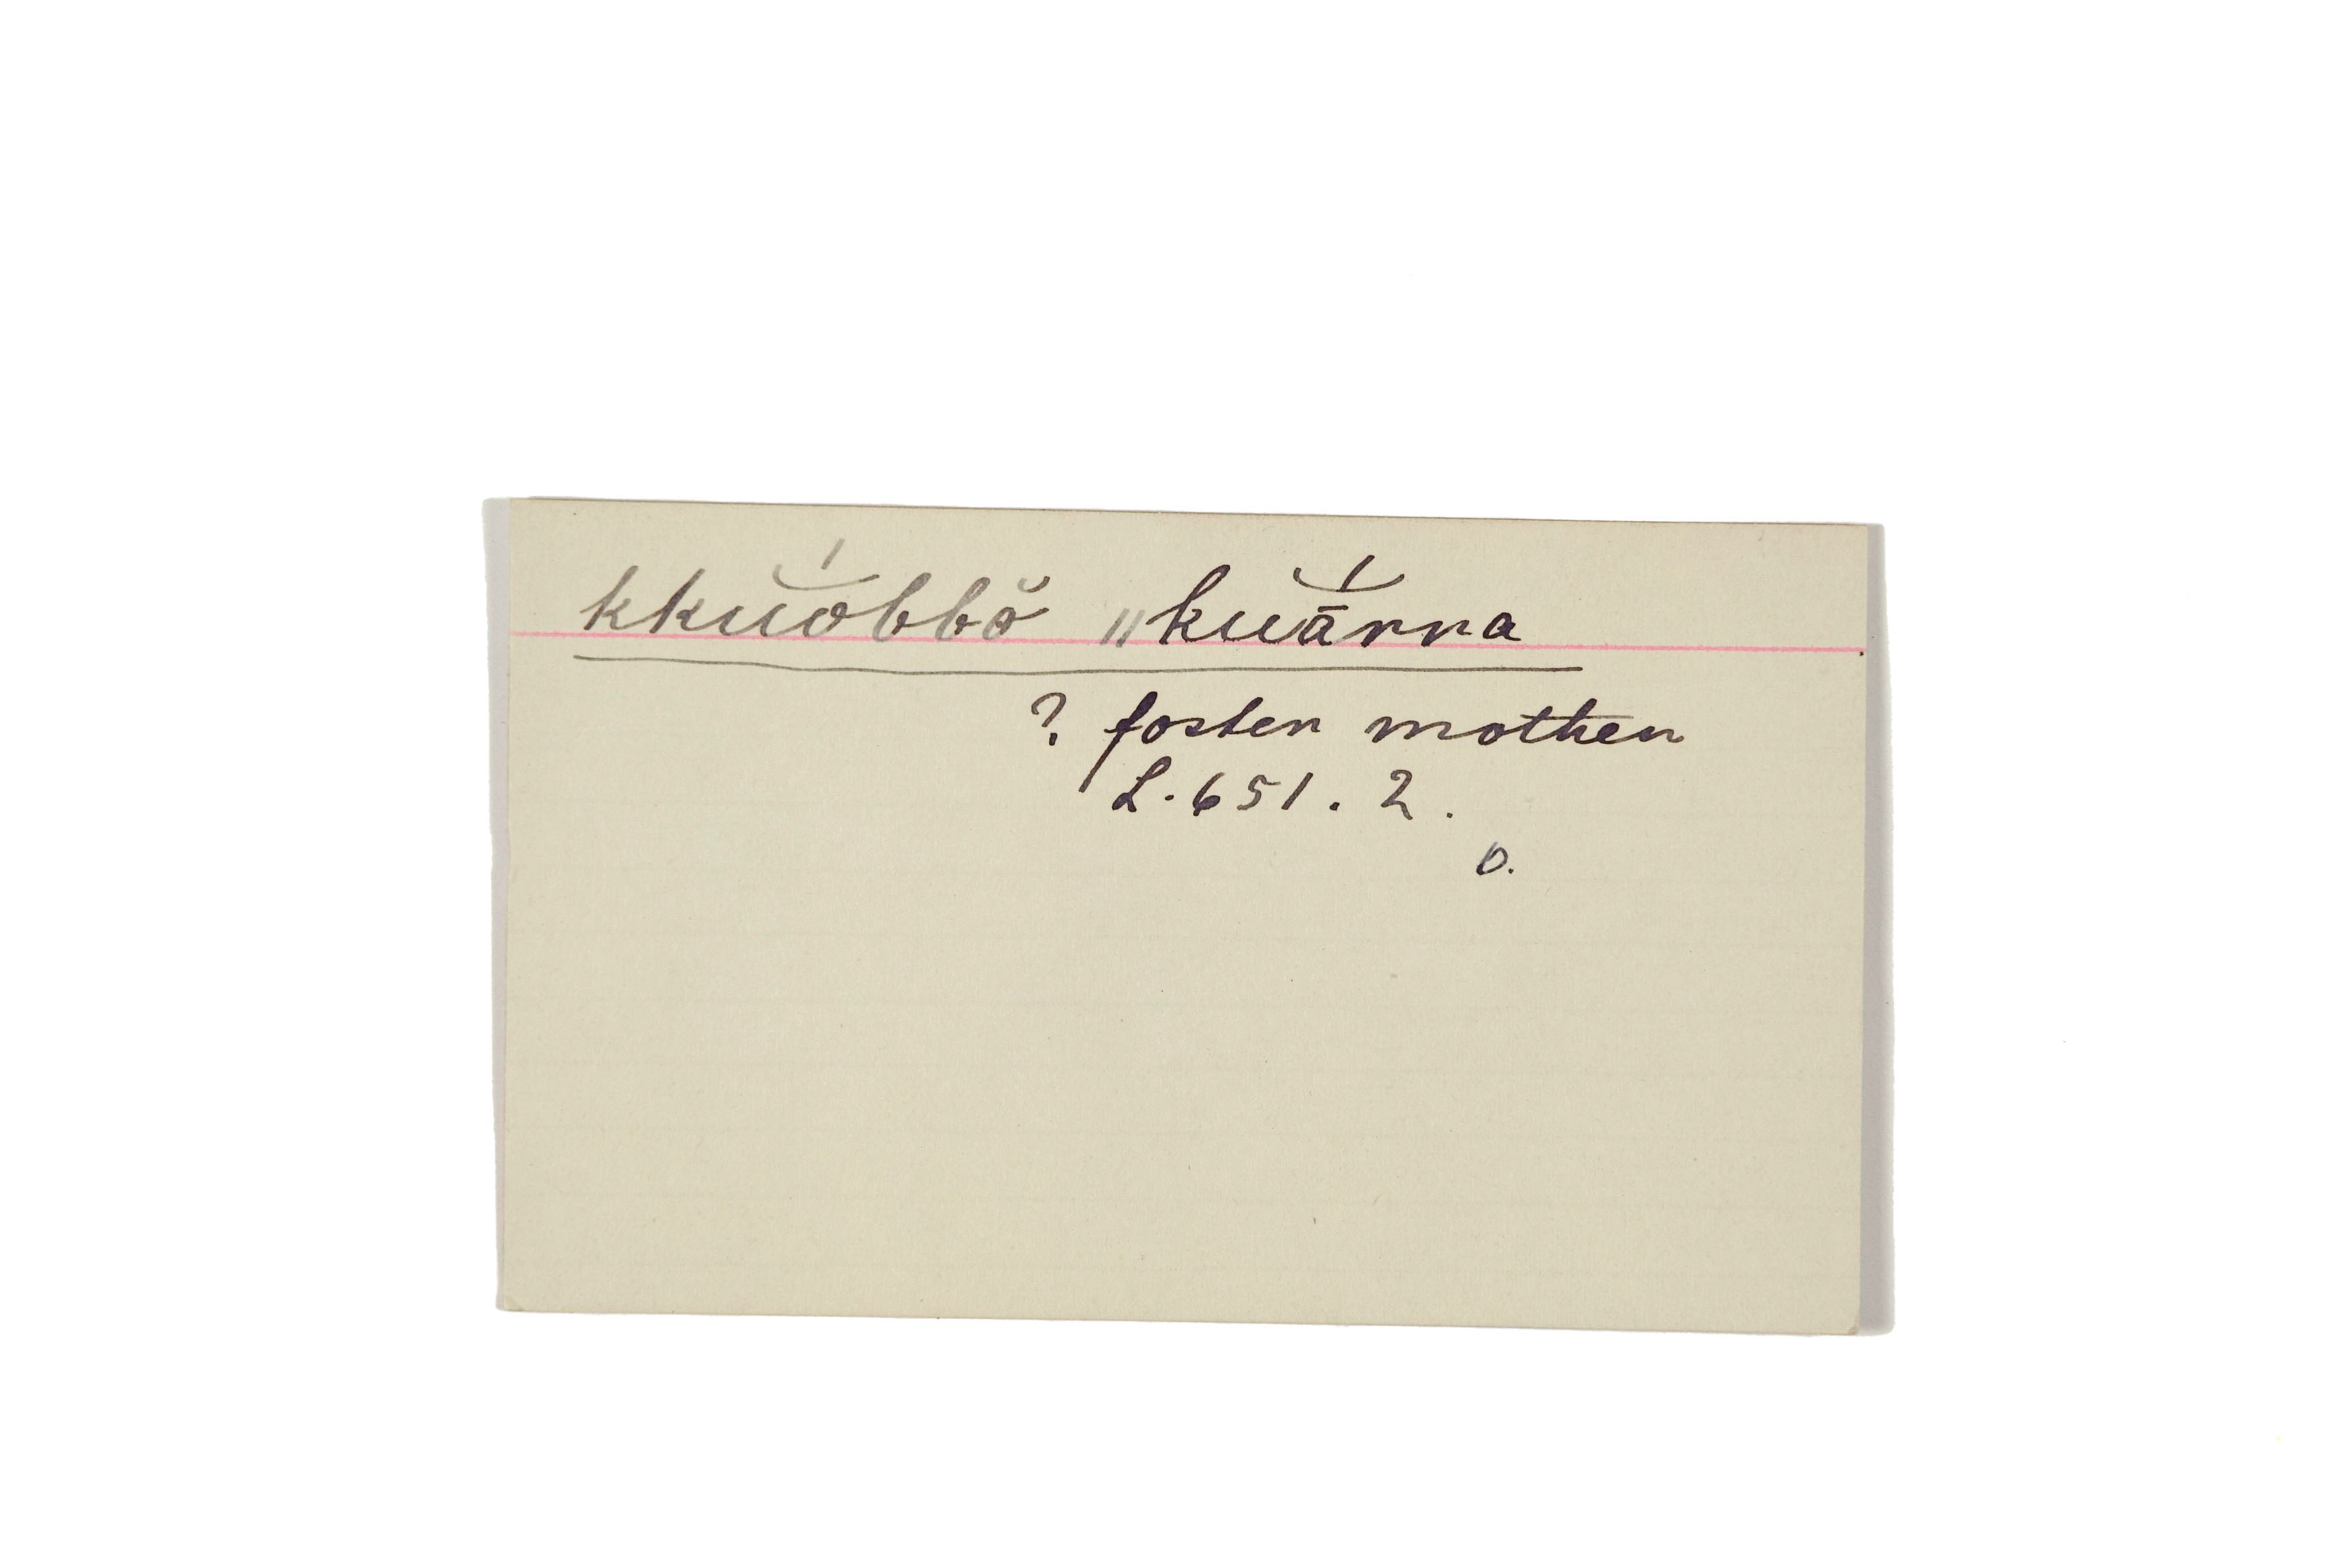 kkŭ́ŏbbŏ̆ ‖kŭ́ārra
? foster mother
L.651.2.
D.